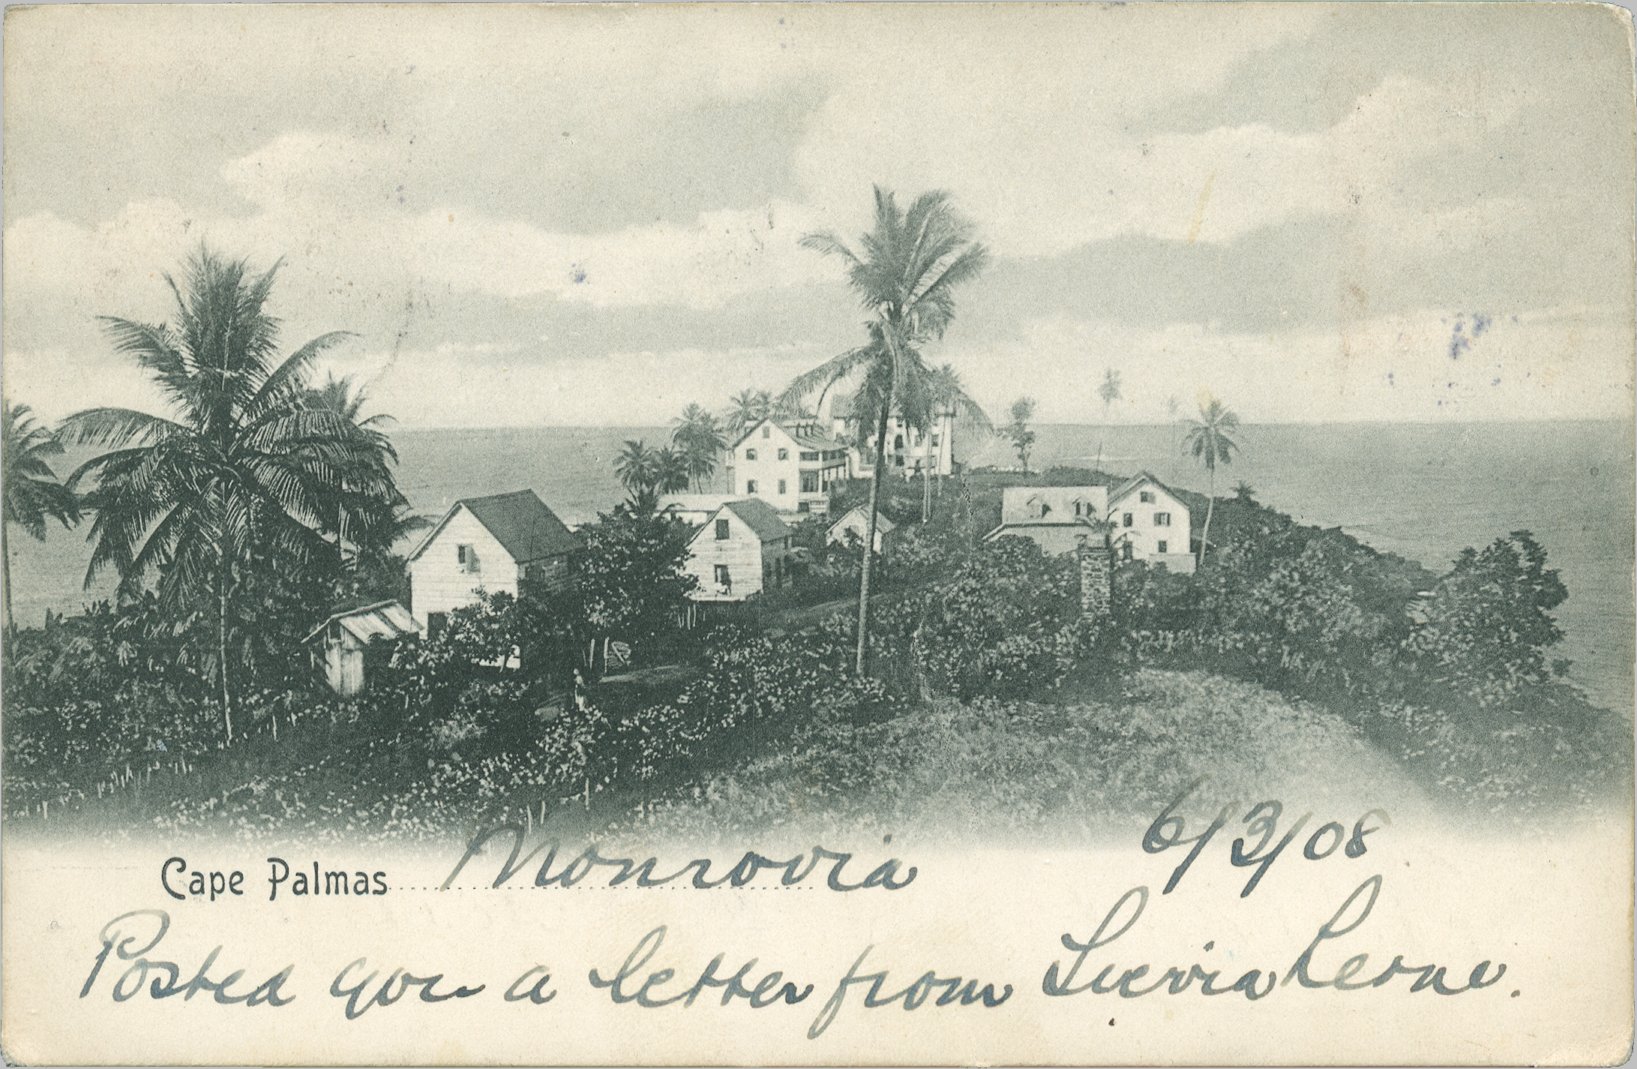 Cape Palmas Monrovia 6/3/08
Posted you a letter from Sierra Leone.